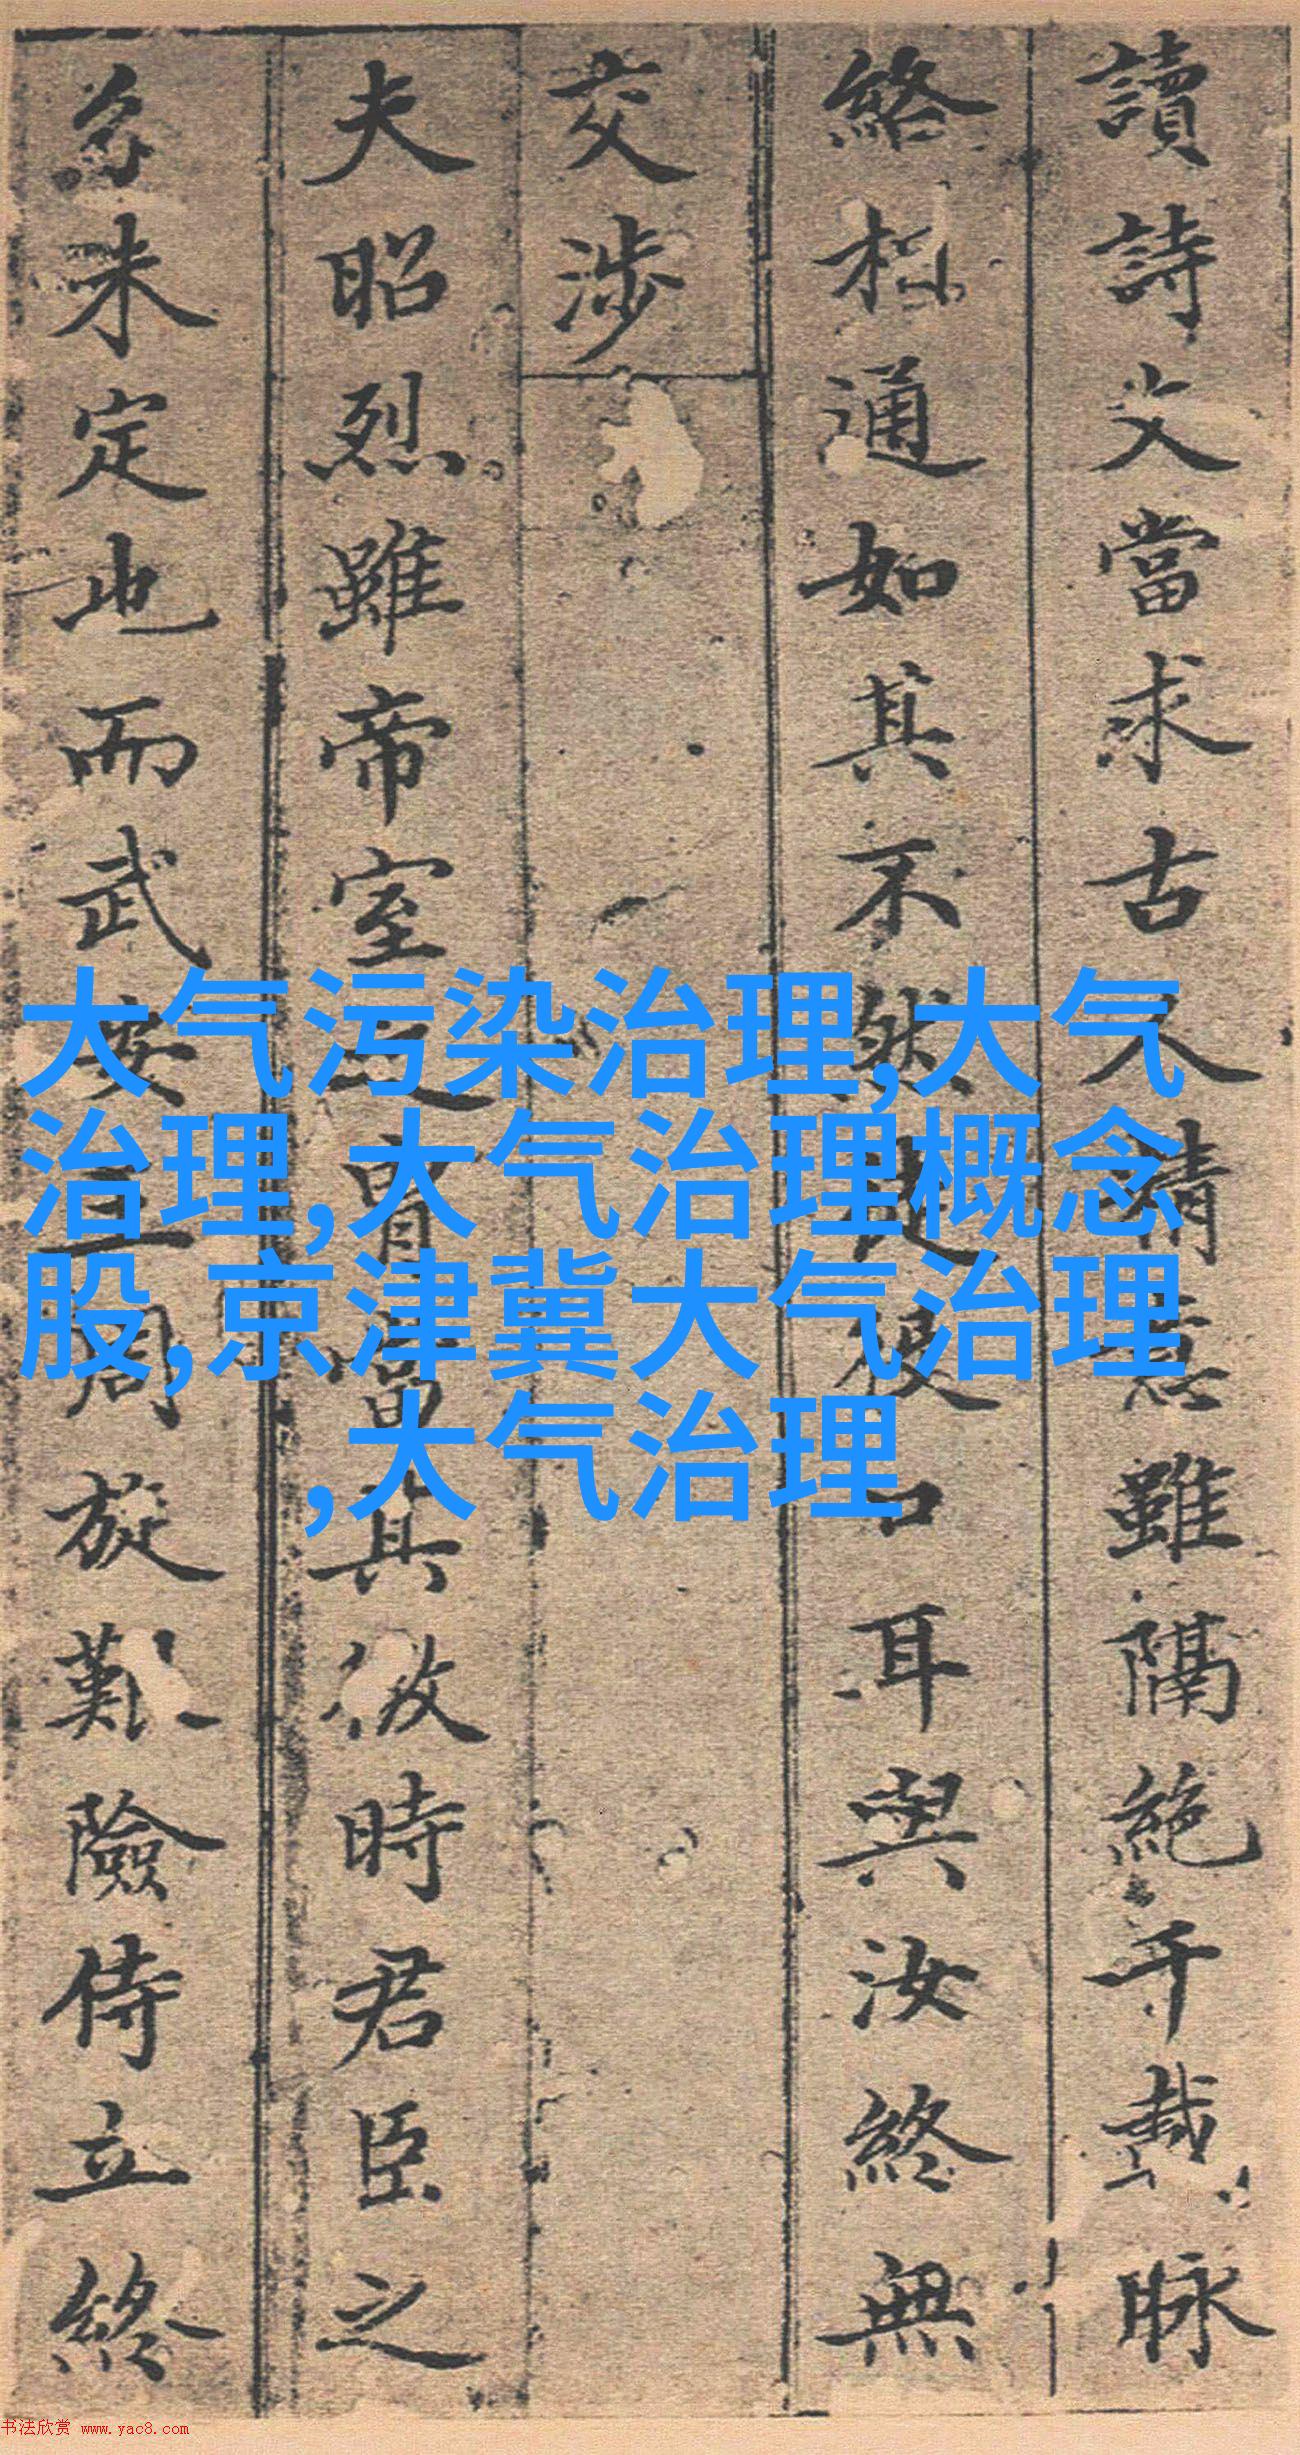 大气污染治理,大气
治理,大气治理概念
股,京津冀大气治理
,大气治理
讀詩文當求古人意雖隔絶千載脉
絡相通如其不然口耳與汝終無
交涉
夫昭烈雖帝室之胄當其微時君臣之
分未定也而武安王周旋難險侍立終
书法欣赏 www.yac8.com